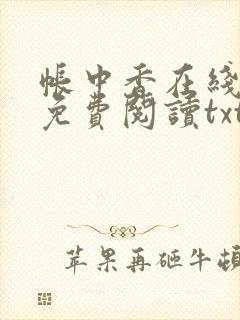 帳中香在綫
免費閱讀txt
苹果再砸牛頓